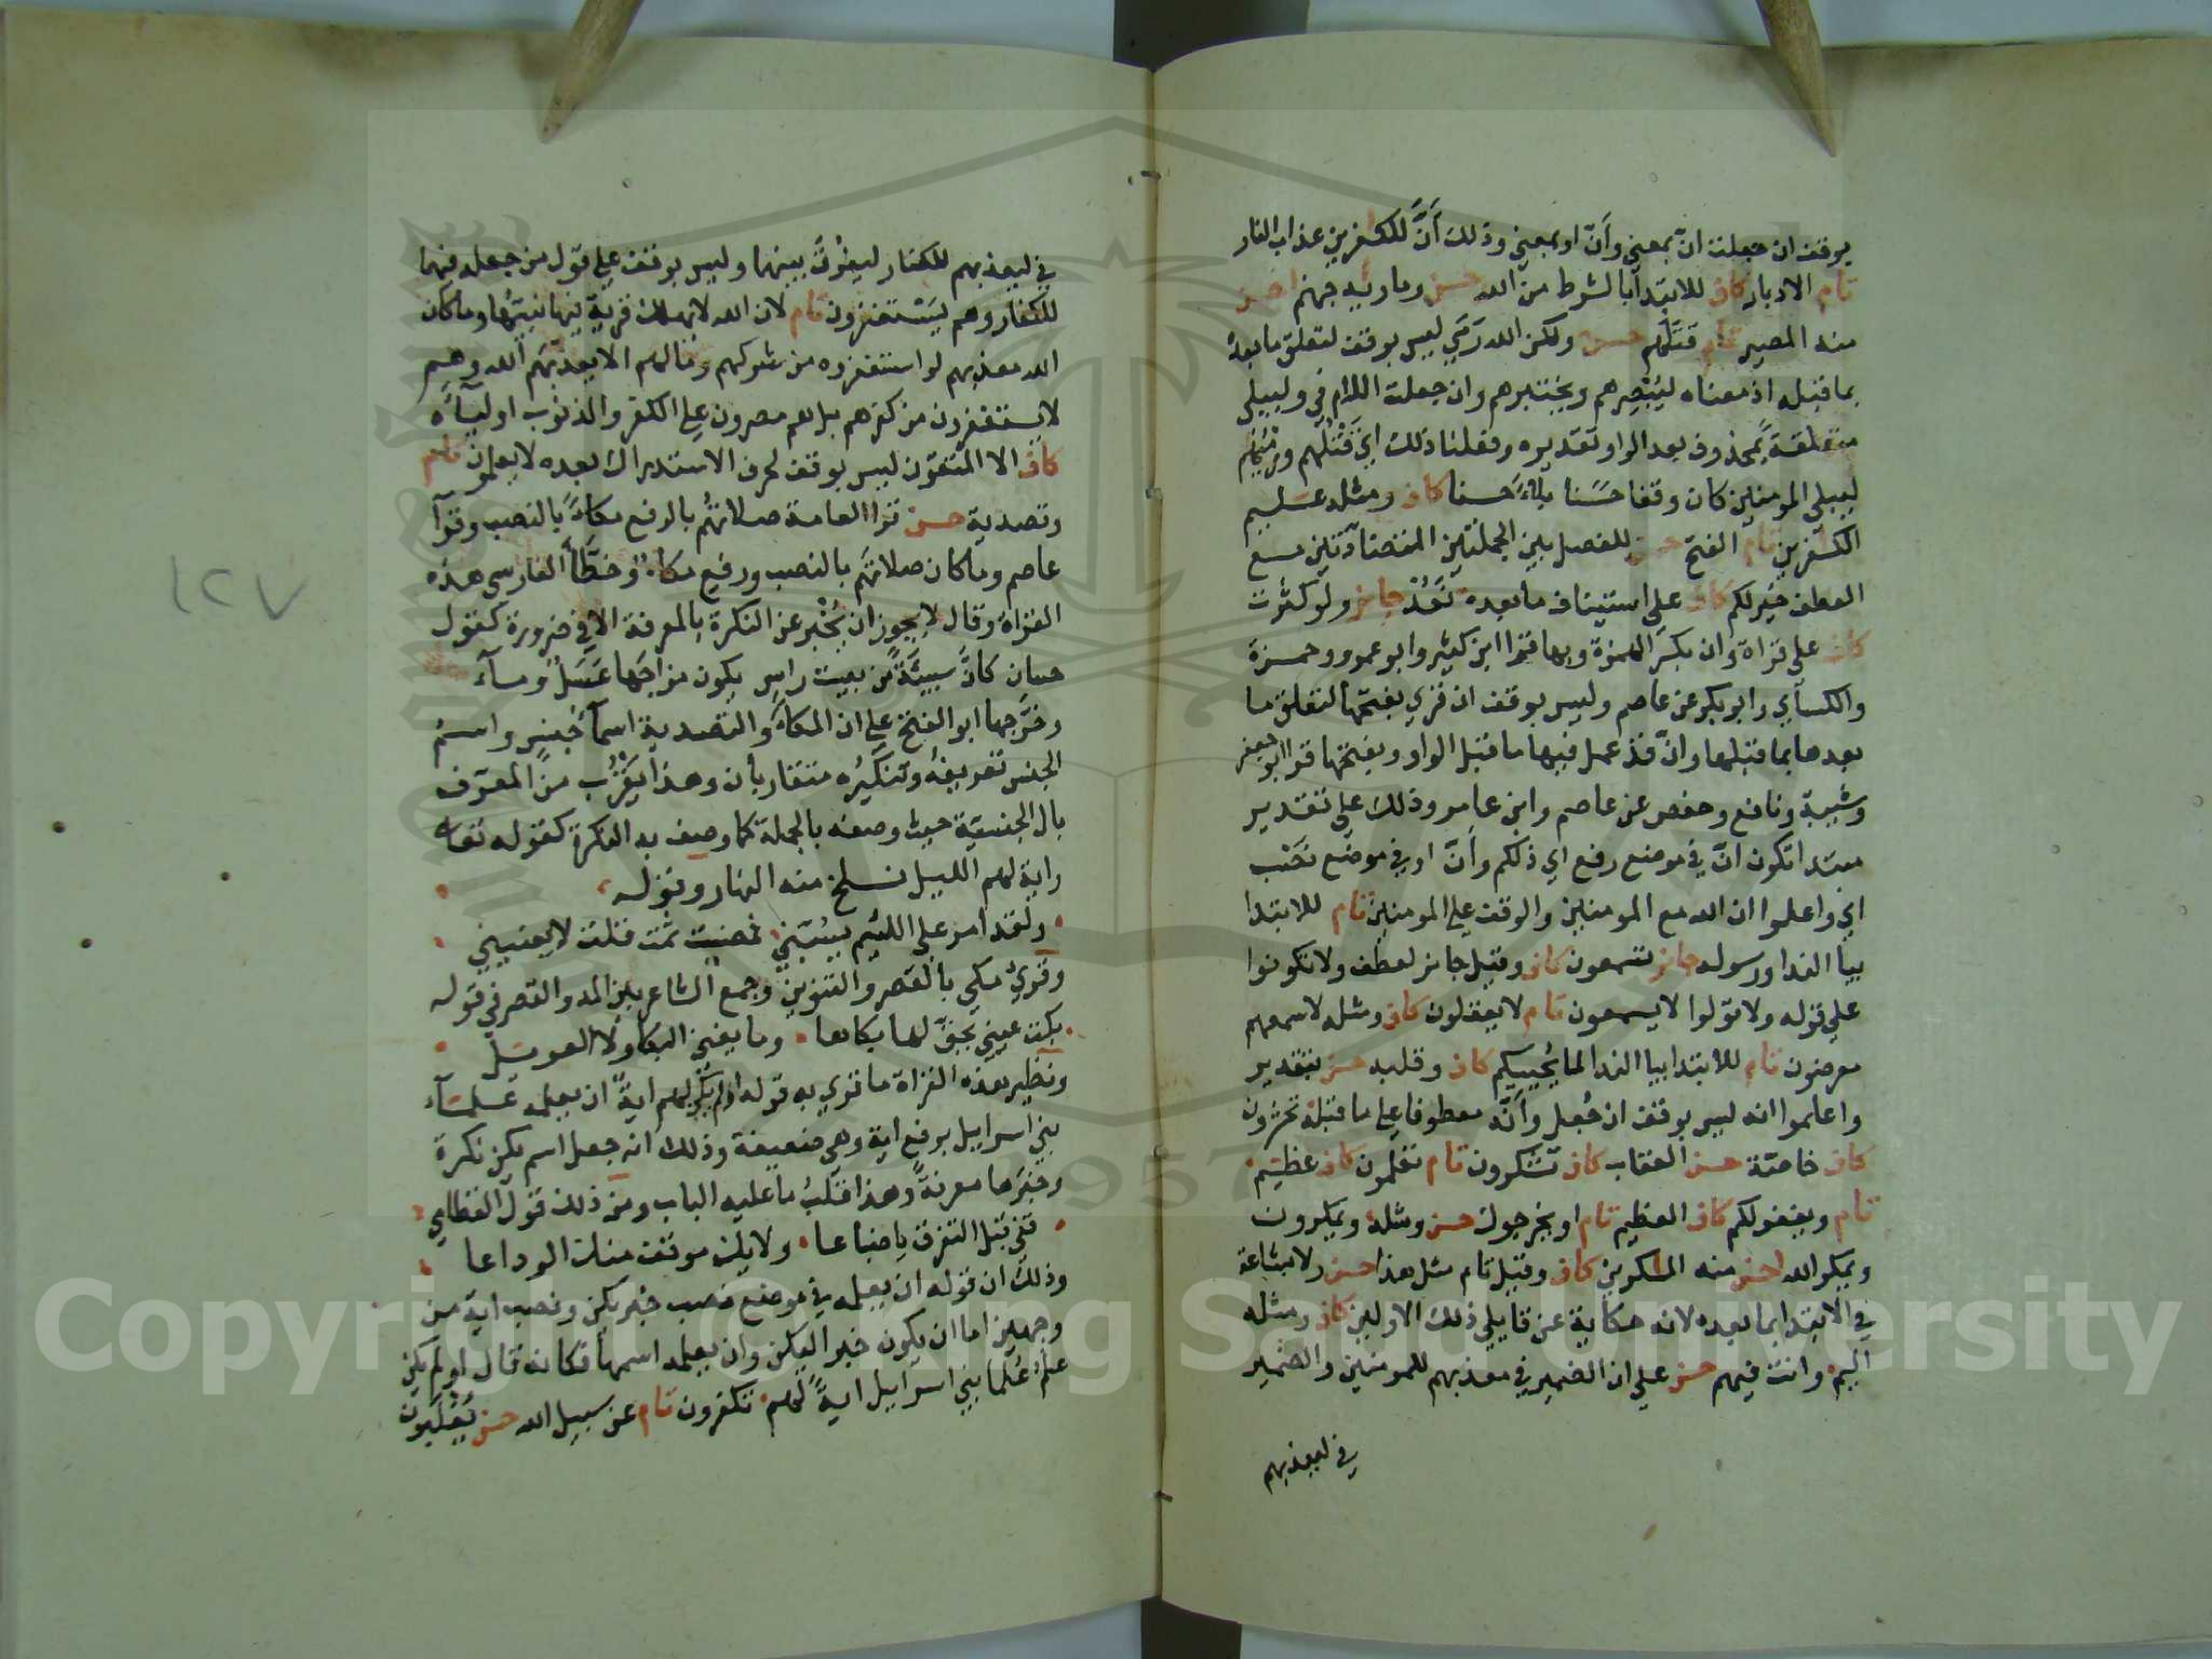 يوقف ان جعلت انّ بمعني وأنّ او بمعني وذلك أنّ للكفرين عذاب النار
تام الادبار كاف للابتدا بالشرط من الله حسن وماويه جهنم احسن
منه المصير تام قتلهم حسن ولكن الله رمي ليس بوقف لتعلق ما بعده
بما قبله اذ معناه ليبصرهم ويختبرهم وان جعلت اللام في وليبلي
متعلقة بمحذوف بعد الواو تقديره وفعلنا ذلك اي قتلهم ورميهم
ليبلي المومنين كان وقفا حسنا بلاء حسنا كاف ومثله عليم
الكفرين تام الفتح حسن للفصل بين الجملتين المتضادتين مع
العطف خير لكم كاف علي استيناف ما بعده نعد جايز ولو كثرت
كاف علي قراة وان بكسر الهمزة وبها قرا ابن كثير وابو عمرو وحمزة
والكسآي وابو بكر عن عاصم وليس بوقف ان قري بفتحها لتعلق ما
بعدها بما قبلها وانّ قد عمل فيها ما قبل الواو وبفتحها قرا ابو جعفر
وشيبة ونافع وحفص عن عاصم وابن عامر وذلك علي تقدير
مبتدا تكون انّ في موضع رفع اي ذلكم وأنّ او في موضع نصب
اي واعلموا ان الله مع المومنين والوقف علي المومنين تام للابتدا
بيا الندا ورسوله جايز تسمعون كاف وقيل جايز لعطف ولا تكونوا
علي قوله ولا تولوا لا يسمعون تام لا يعقلون كاف ومثله لاسمعهم
معرضون تام للابتدا بيا الندا لما يحييكم كاف وقلبه حسن بتقدير
واعلموا انه ليس بوقف ان جعل وأنّه معطوفا علي ما قبله تحشرون
كاف خاصة حسن العقاب كاف تشكرون تام تعلمون كاف عظيم
تام ويغفر لكم كاف العظيم تام او يخرجوك حسن ومثله ويمكرون
ويمكر الله احسن منه المكرين كاف وقيل تام مثل هذا حسن ولا بشاعة
في الابتدا بما بعده لانه حكاية عن قايلي ذلك الاولين كاف ومثله
اليم وانت فيهم حسن علي ان الضمير في معذبهم للمومنين والضمير
في ليعذبهم
في ليعذبهم للكفار ليفرق بينهما وليس بوقف علي قول من جعله فيهما
للكفار وهم يستغفرون تام لان الله لا يهلك قرية فيها نبيها وما كان
الله معذبهم لو استغفروه من شركهم وما لهم الا يعذبهم الله وهم
لا يستغفرون من كفرهم بل هم مصرون علي الكفر والذنوب اوليآءه
كاف الا المتقون ليس بوقف لحرف الاستدراك بعده لا يعلمون تام
وتصدية حسن قرا العامة صلاتهم بالرفع مكاء بالنصب وقرآ
عاصم وما كان صلاتهم بالنصب ورفع مكاء وخطّأ الفارسي هذه
القراة وقال لا يجوز ان يخبر عن النكرة بالمعرفة الا في ضرورة كقول
حسان كانّ سبيئة من بيت راس يكون مزاجها عسل ومآء
وخرّجها ابو الفتح علي ان المكاء والتصدية اسمآ جنس واسم
الجنس تعريفه وتنكيره متقاربان وهذا يقرب من المعرّف
بال الجنسية حيث وصفه بالجملة كما وصف به النكرة كقوله تعالي
واية لهم الليل نسلخ منه النهار وقوله
ولقد امر علي اللئيم يسبني فمضيت ثمت قلت لا يعنيني
وقري مكي بالقصر والتنوين وجمع الشاعر بين المد والقصر في قوله
بكت عيني بحق لها بكاها وما يغني البكا ولا العويل
ونظير هذه القراة ما قري به قوله اولم يكن لهم اية ان يعلمه علمآء
بني اسرايل برفع اية وهي ضعيفة وذلك انه جعل اسم يكن نكرة
وخبرها معرفة وهذا قلب ما عليه الباب ومن ذلك قول القطامي
قفي قبل التفرق يا ضباعا ولا يك موقف منك الوداعا
وذلك ان قوله ان يعلمه في موضع نصب خبر يكن ونصب اية من
وجهين اما ان يكون خبر اليكن وان يعلمه اسمها فكانه قال اولم يكن
علم علما بني اسرايل اية لهم تكفرون تام عن سبيل الله حسن يغلبون
١٢٧
1957
Copyright © King Saud University